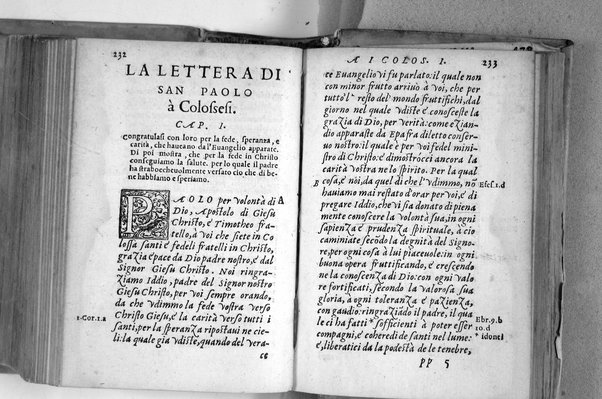 232
LA LETTERA DI
SAN PAOLO
à Colossesi.
CAP. I.
Congratulasi con loro per la fede, speranza, e
carità, che haueano da l'Euangelio apparate.
Di poi mostra, che per la fede in Christo
conseguiamo la salute. per lo quale il padre
ha straboccheuolmente versato cio che di be-
ne habbiamo e speriamo.
PAOLO per volontà di A
Dio, Apostolo di Giesu
Christo, e Timotheo fra-
tello, à voi che siete in Co
lossa santi e fedeli fratelli in Christo,
grazia e pace da Dio padre nostro, e dal
Signor Giesu Christo. Noi ringra-
ziamo Iddio, padre del Signor nostro
Giesu Christo, per voi sempre orando,
da che vdimmo la fede vostra verso
Christo Giesu, e la carità verso tutti i
1.Cor.1.a santi, per la speranza ripostaui ne cie-
li: la quale gia vdiste, quando del vera-
ce
A I COLOS. I. 233
ce Euangelio vi fu parlato: il quale non
con minor frutto arriuò à voi, che per
tutto'l resto del mondo fruttifichi, dal
giorno nel quale vdiste e conosceste la
grazia di Dio, per verità: come eZian-
dio apparaste da Epafra diletto conser-
uo nostro: il quale è per voi fedel mini-
stro di Christo: e dimostrocci ancora la
carità vostra ne lo spirito. Per la qual
B cosa, e nòi, da quel di che l'vdimmo, nō Efes.1.d
hauiamo mai restato d'orar per voi, e di
pregare Iddio, che vi sia donato di piena
mente conoscere la volontà sua, in ogni
sapienza e prudenza spirituale, à cio
caminiate secōdo la degnità del Signo-
re, per ogni cosa à lui piaceuole: in ogni
buona opera fruttificando, e crescendo
ne la conoscenza di Dio: con ogni valo
re fortificati, secondo la valorosa sua
gloria, à ogni toleranza e pazienza,
con gaudio: ringraziado il padre, il qua
le ci ha fatti * sofficienti à poter esser Ebr.9.b
10.d
compagni, e coheredi de santi nel lume: * idonei
e, liberatici da la podestà de le tenebre,
PP 5